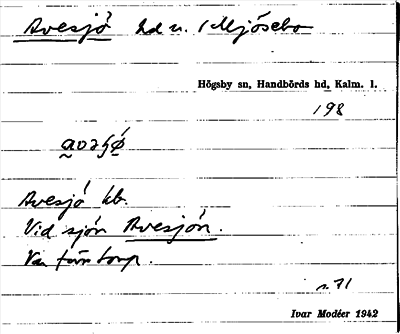 Avesjö hd u. Mjösebo
Högsby sn, Handbörds hd, Kalm. l.
198
Avesjö hb.
Vid sjön Avesjön.
s. 71
Ivar Modéer 1942